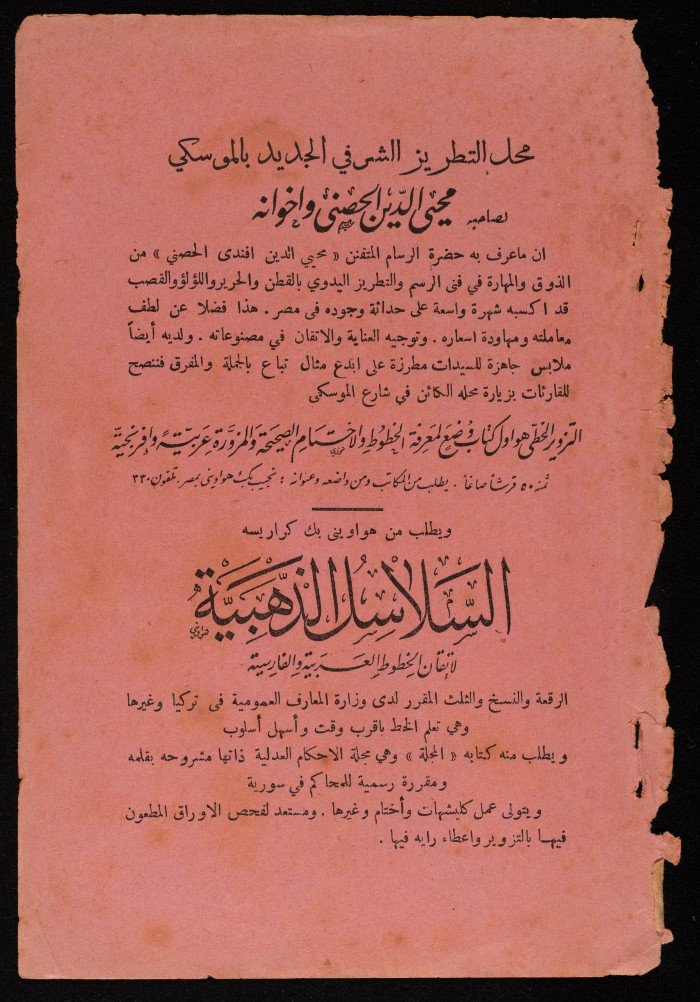 محل التطريز الشرفي الجديد بالموسكي
لصاحبه محيي الدين الحصني واخوانه
ان ماعرف به حضرة الرسام المتفنن « محيي الدين افندى الحصني » من
الذوق والمهارة في فنى الرسم والتطريز اليدوي بالقطن والحرير واللؤلؤ والقصب
قد اكسبه شهرة واسعة على حداثة وجوده فى مصر . هذا فضلا عن لطف
معاملته ومهاودة اسعاره . وتوجيه العناية والاتقان في مصنوعاته . ولديه أيضاً
ملابس جاهزة للسيدات مطرزة على ابدع مثال تباع بالجملة والمفرق فننصح
للقارئات بزيارة محله الكائن في شارع الموسكى
التزوير الخطى هو اول كتاب وضع لمعرفة الخطوط والاختام الصحيحة والمزورة عربية وافرنجية
ثمنه ٥٠ قرشاً صاغاً . يطلب من المكاتب ومن واضعه وعنوانه : نجيب بك هواويني بمصر . تلفون ٣٣٠
ويطلب من هواويني بك كراريسه
السلاسل الذهبية
هواويني
لإتقان الخطوط العربية والفارسية
الرقعة والنسخ والثلث المقرر لدى وزارة المعارف العمومية فى تركيا وغيرها
وهي تعلم الخط باقرب وقت وأسهل أسلوب
ويطلب منه كتابه « المجلة » وهي مجلة الاحكام العدلية ذاتها مشروحه بقلمه
ومقررة رسمية للمحاكم في سورية
ويتولى عمل كليشهات وأختام وغيرها . ومستعد لفحص الاوراق المطعون
فيها بالتزوير واعطاء رايه فيها .